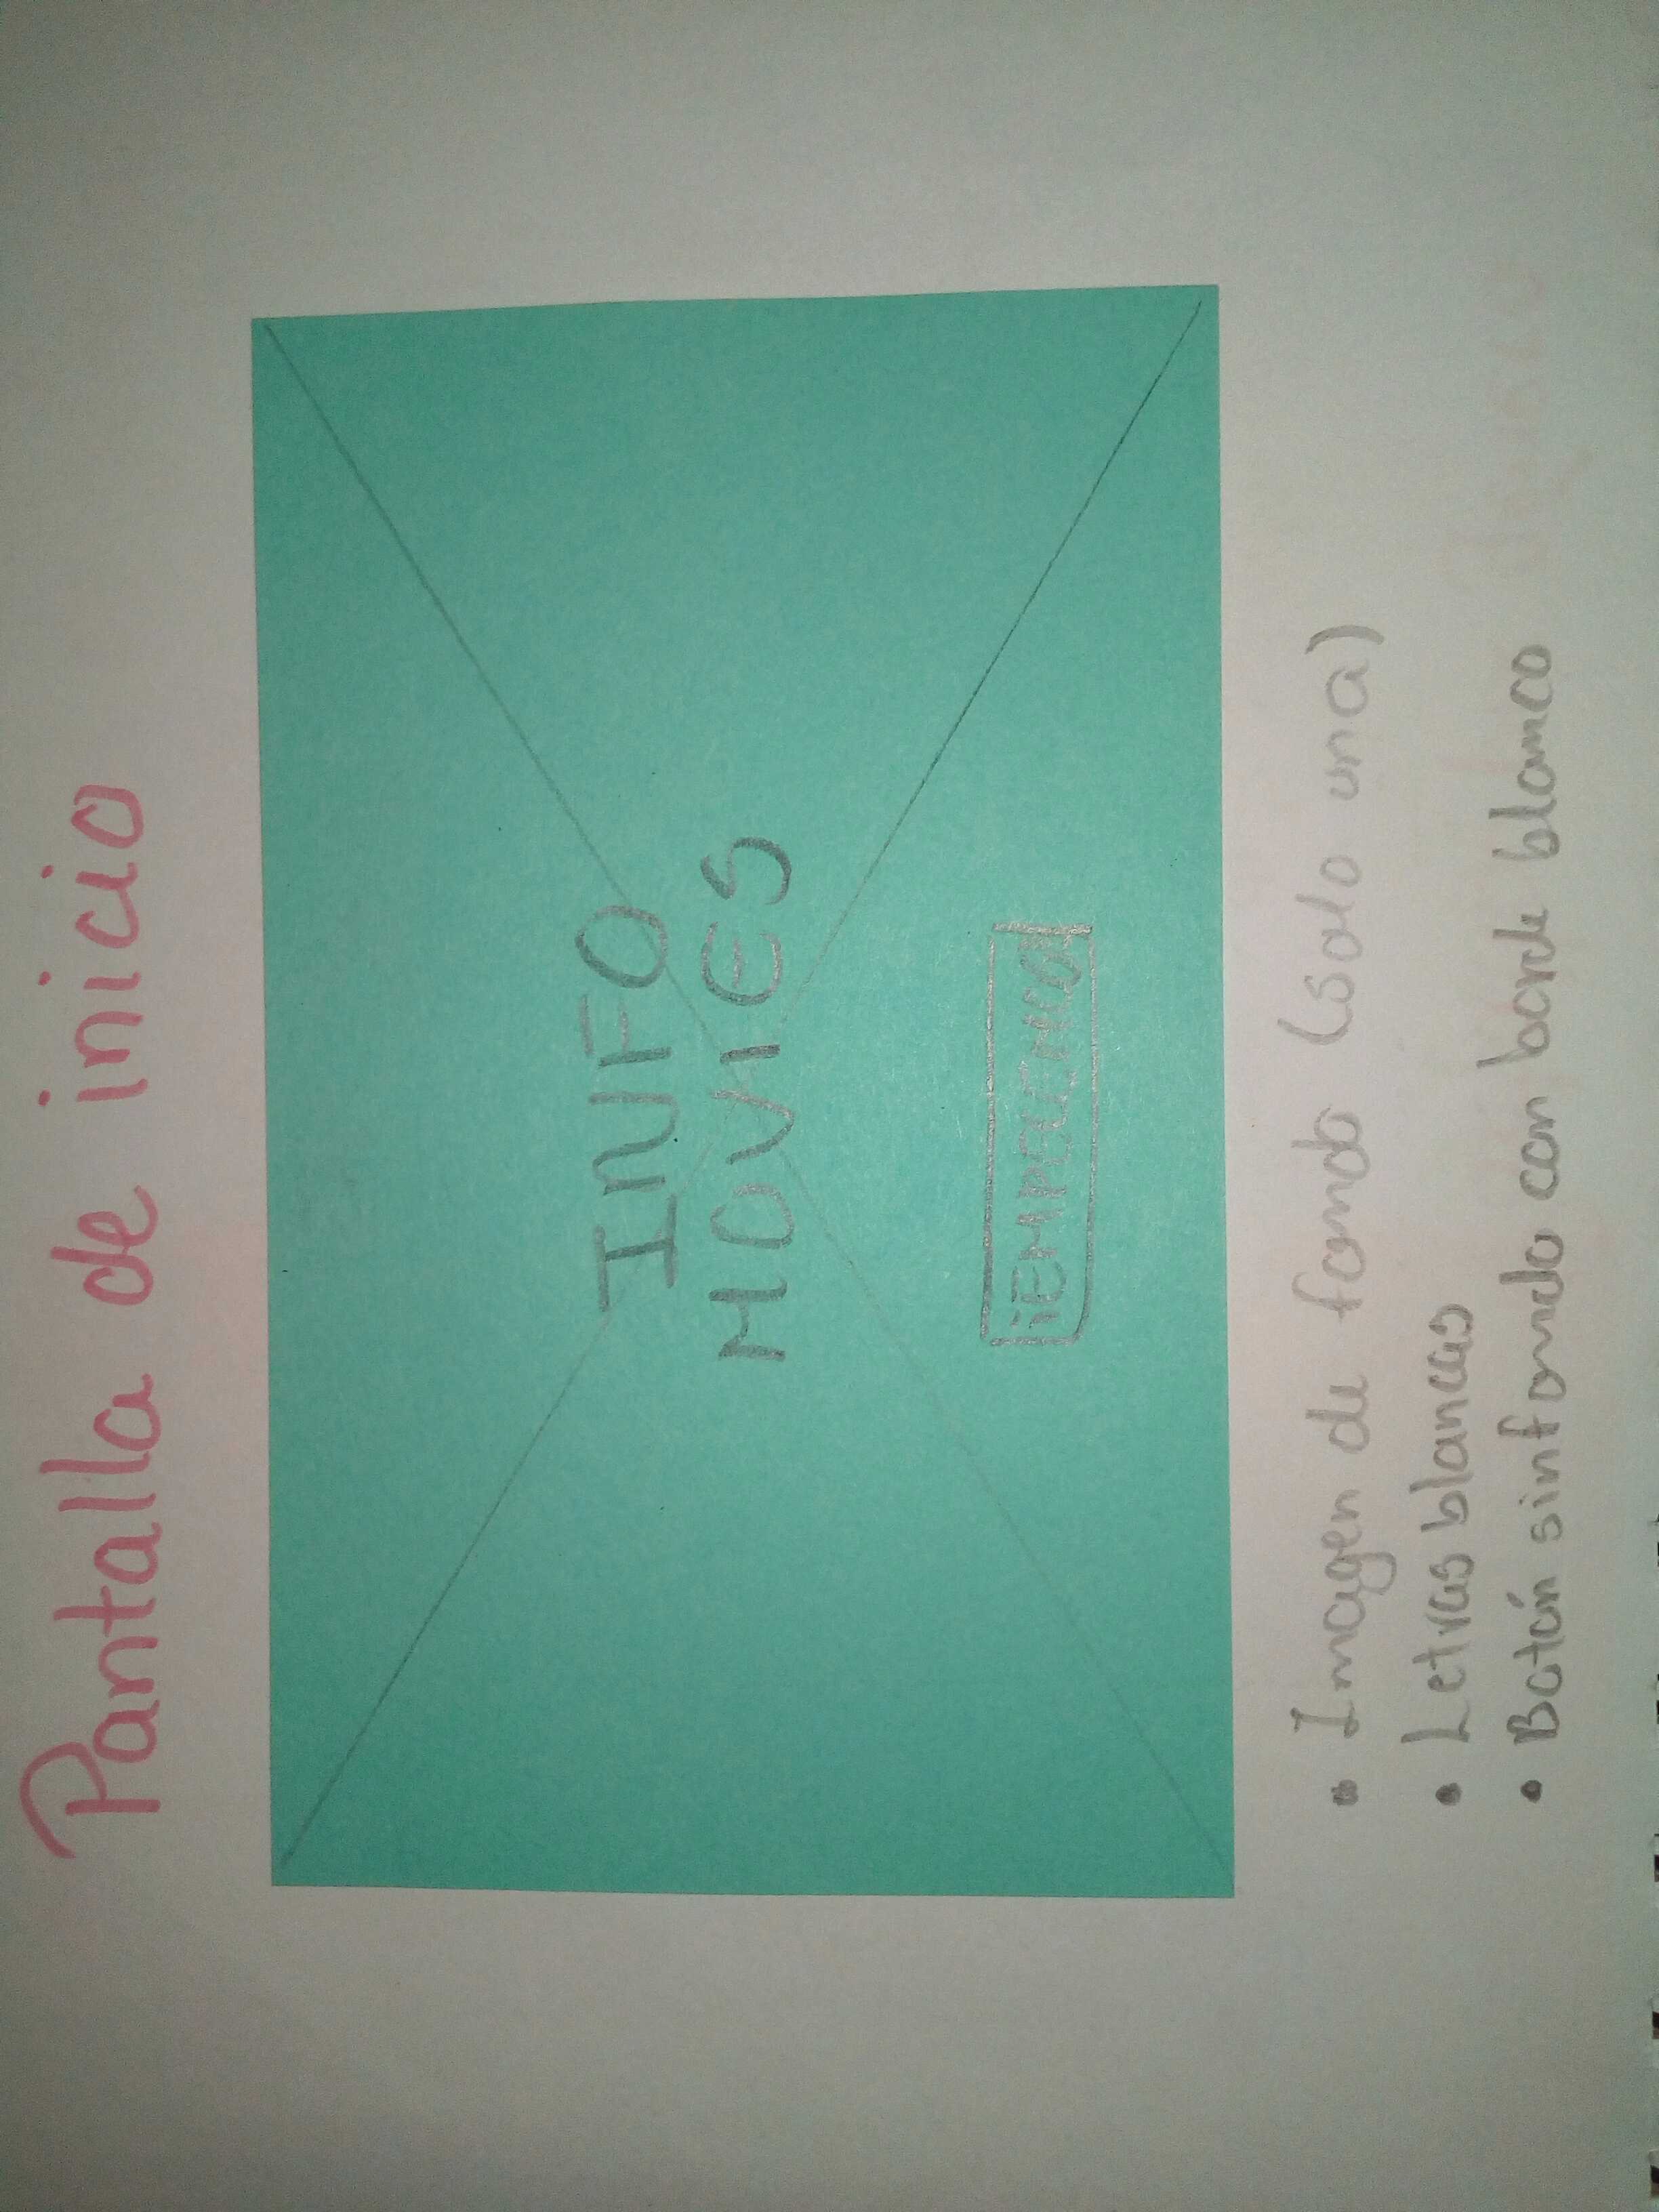 Pantalla de inicio
INFO
MOVIES
¡EMPECEMOS!
• Imagen de fondo (solo una)
• Letras blancas
• Botón sin fondo con borde blanco